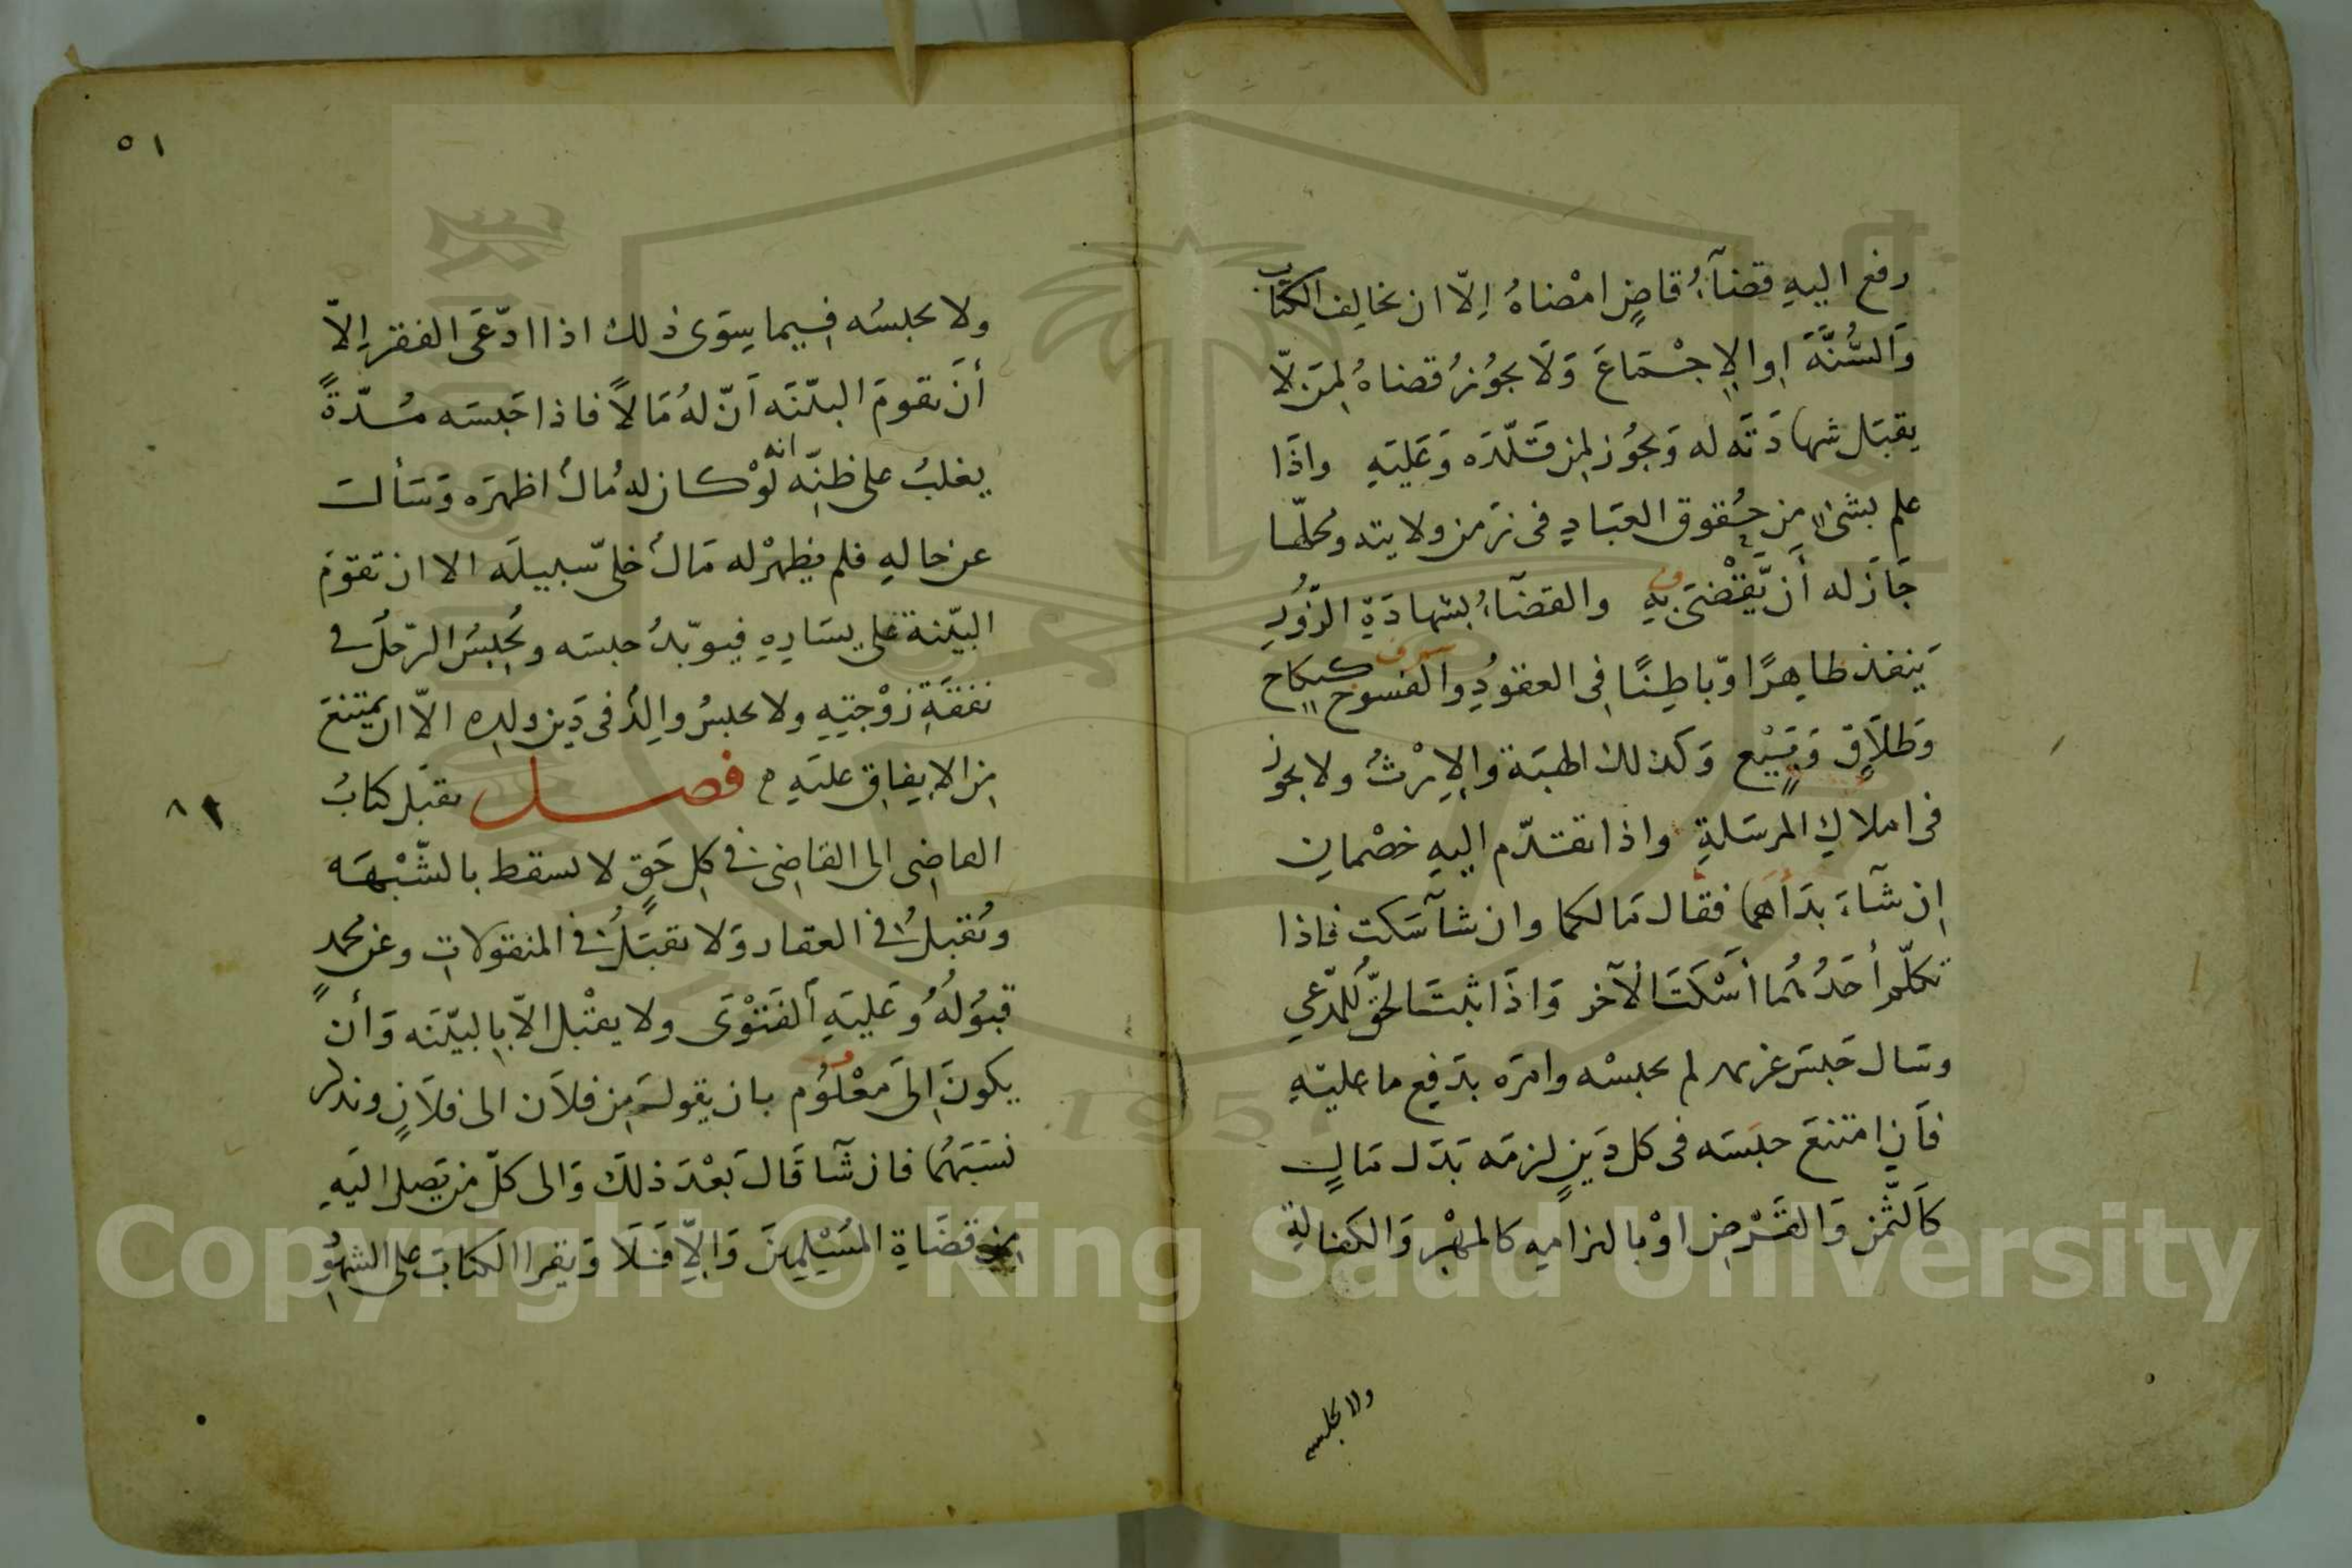 رفع اليهِ قضآءُ قاضٍ امْضاهُ اِلّا ان يخالف الكتاب
وَالسُّنَّةَ اوالاِجْمَاعَ وَلَا يجوُزُ قضاهُ لِمَن لّا
يقبَل شهادَتَه له وَيجوُز لِمن قَلّدَه وَعَليَهِ واذَا
علم بشئ من حُقوق العبَادِ فى زمن ولايته ومحلّها
جَازَ له أَن يَّقْضىَ بهِ والقضَآءُ بشهادَةِ الزّوُرِ
يَنفذ ظاهِرًا وّباطِنًا فِى العقوُدِ والفسوخ كنكاح
وَطلَاقٍ وَبَيْع وَكذلك الهبَة والاِرْثُ ولا يجوز
فى املاكِ المرسَلةِ واذا تقدّم اليهِ خصْمانِ
اِن شَآءَ بدَأهما فقال مَا لكما وان شآ سَكت فاذا
تكلّم أحَدُهُما أسْكَتَ الآخر وَاذَا ثبتَ الحَقُّ للمُدّعي
وسَال حَبسَ غريمه لم يحبسْه وامَره بدَفعِ ما عليَهِ
فَاِن امتنعَ حبَسَه فى كل دَينٍ لزمَه بَدَل مَالٍ
كَالثّمن وَالقَرْضِ اوْ بالتزامِهِ كالمهْرِ وَالكفالةِ
ولا يحبسه
٥١
ولا يحبسُه فِيما سِوَى ذلك اذا ادّعَى الفقر اِلاّ
أنَ تقومَ البيّنَه اَنّ لهُ مَالاً فاذا حَبسَه مُدّةً
يغلبُ على ظنِّه انه لوْ كان له مُالٌ اظهرَه وَسَألَ
عن حَالهِ فلم يظهرْ له مَالٌ خلىّ سَبيلَه الا ان تقومَ
البيّنة على يسَارِهِ فيوبّدُ حبسَه ويُحبِسُ الرّجلُ فى
نفقَةِ زَوْجتِهِ ولا يحبسُ والِدٌ فى دَين ولدِه الاّ ان يمتنعَ
مِن الاِنفاقِ عليَهِ فصل يقبَل كتابُ
القاضِى الى القاضِى فى كلِ حَقٍ لا يسقط بالشّبْهَه
وَيُقبلُ فى العقار وَلا يقبَلُ فى المنقولاتِ وعن محمدٍ
قبوُلُهُ وَعَليَهِ اَلفَتْوَى ولا يقْبل الاّ بالبيّنَه وَأن
يكونَ اِلىَ مَعْلوُم بان يقولَ مِن فلَان الى فلَانٍ ويذكر
نَسَبَهُمَا فان شَآ قَالَ بَعْدَ ذلكَ وَالى كلّ من يَصِل اليَهِ
مِن قضَاةِ المسْلِمِينَ وَاِلاّ فَلَا وَيقرا الكتابَ على الشهوُدِ